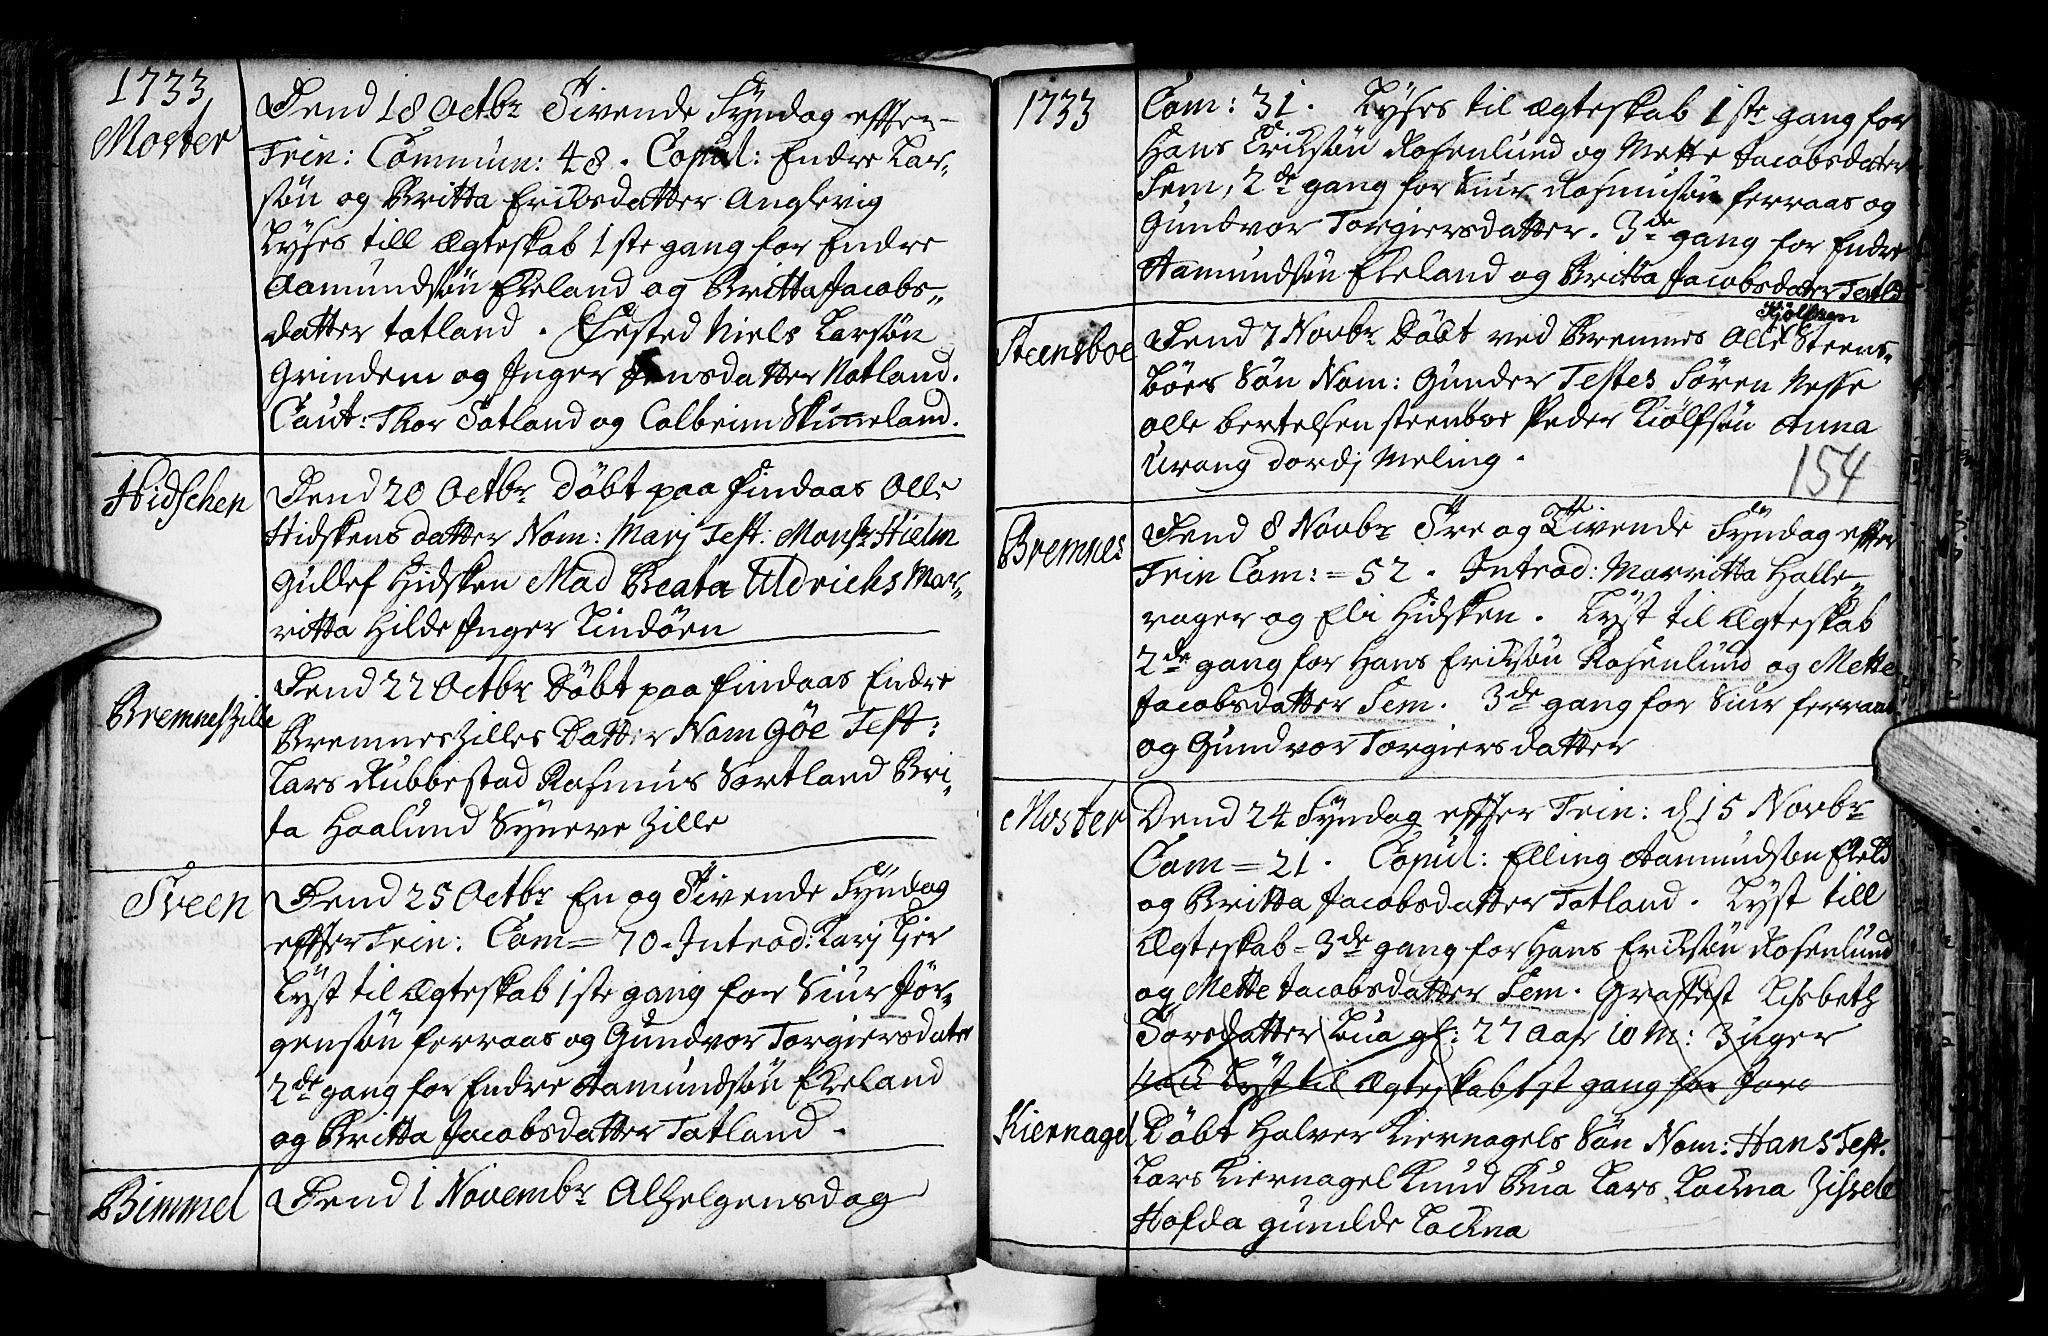 1733
Moster
Dend 18 Octbr Tivende Syndag effter
Trin: Commun: 48. Copul: Endre Lar-
søn og Britta Eriksdatter Anglevig
Lyses till Ægteskab 1ste gang for Endre
Aamundsøn Ekeland og Britta Jacobs-
datter totland. Fæsted Niels Larsøn
Grindem og Inger Jensdatter Notland.
Caut: Thor Totland og Colbein Skimeland.
Hidschen
Dend 20 Octbr Døbt paa Findaas Olle
Hidskens datter Nom: Marj Test: Monsr Hielm
Gullef Hidsken Mad Beata Uldrichs Mar-
ritta Hilde Inger Lindøen
Bremnes Zille
Dend 22 Octbr Døbt paa Findaas Endre
Bremnes Zilles Datter Nom Gøe Test:
Lars Rubbestad Rasmus Sortland Bri-
ta Haalund Synneve Zille
Sveen
Dend 25 Octbr En og Tivende Syndag
effter Trin: Com = 70. Introd: Karj Lier
Lyst til Ægteskab 1ste gang for Siur Jør-
gensøn ferraas og Gundvor Torgiersdater
2de gang for Endre Aamundsøn Ekeland
og Britta Jacobsdatter Totland.
Bimmel
Dend 1 Novembr Alhelgensdag
1733
Com: 31. Lyses til Ægteskab 1ste gang for
Hans Eriksøn Rosenlund og Mette Jacobsdater
Sem, 2de gang for Siur Rasmusøn ferraas og
Gundvor Torgiersdatter. 3de gang for Endre
Aamundsøn Ekeland og Britta Jacobsdater Totld
Steensboe
Kiølfsen
Dend 7 Novbr Døbt ved Bremnes Olle Steens-
boes Søn Nom: Gunder Testes Søren Nesse
Olle bertelsen steenboe Peder Kiølfsøn Anna
Urang dordj Meling.
154
Bremnes
Dend 8 Novbr Tre og Tivende Syndag effter
Trin Com: = 52. Introd: Marritta Halle-
rager og Eli Hidsken. Lyst til Ægteskab
2de gang for Hans Eriksøn Rosenlund og Mette
Jacobsdatter Sem. 3de gang for Siur ferraas
og Gundvor Torgiersdatter
Moster
Dend 24 Syndag effter Trin: d 15 Novbr
Com = 21. Copul: Elling Aamundsøn Ekeld
og Britta Jacobsdatter Totland. Lyst till
Ægteskab = 3de gang for Hans Eriksøn Rosenlund
og Mette Jacobsdatter Sem. Graffest Lisbeth
Torsdatter Bua gl: 27 Aar 10 M: 3 uger
Lyst til Ægteskab 1st gang for
Kiernagel
Døbt Halver Kiernagels Søn Nom: Hans Test.
Lars Kiernagel Knud Bua Lars Lochna Zissele
Hofda gunilde Lochna